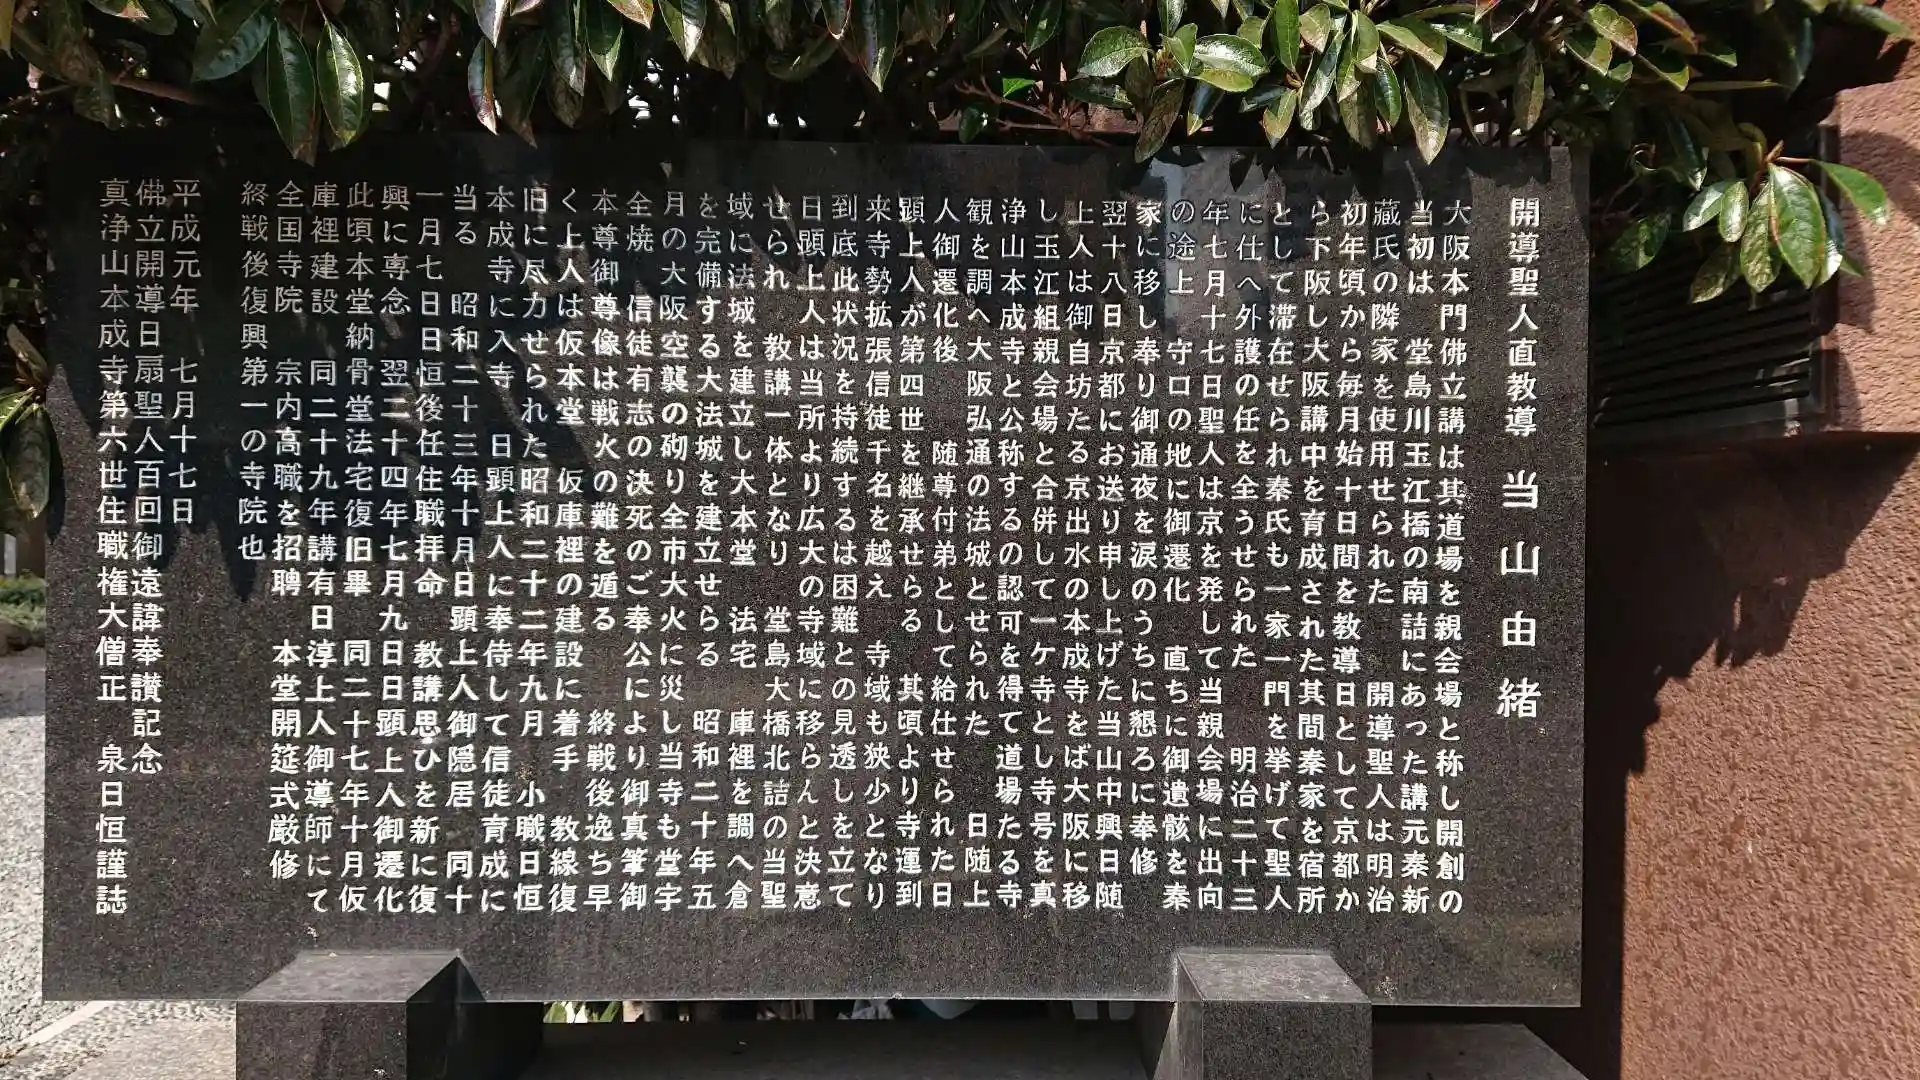 開導聖人直教導 当山由緒
大阪本門佛立講は其道場を親会場と称し開創の
当初は 堂島川玉江橋の南詰にあった講元秦新
藏氏の隣家を使用せられた 開導聖人は明治
初年頃から毎月始十日間を教導日として京都か
ら下阪し大阪講中を育成された其間秦家を宿所
として滞在せられ秦氏も一家一門を挙げて聖人
に仕へ外護の任を全うせられた 明治二十三
年七月十七日聖人は京を発して当親会場に出向
の途上 守口の地に御遷化 直ちに御遺骸を秦
家に移し奉り御通夜を涙のうちに懇ろに奉修
翌十八日京都にお送り申し上げた当山中興日随
上人は御自坊たる京出水の本成寺をば大阪に移
し玉江組親会場と合併して一ケ寺とし寺号を真
浄山本成寺と公称するの認可を得て道場たる寺
観を調へ大阪弘通の法城とせられた 日随上
人御遷化後 随尊付弟として給仕せられた日
顕上人が第四世を継承せらる 其頃より寺運到
来寺勢拡張信徒千名を越え 寺域も狭少となり
到底此状況を持続するは困難との見透しを立て
日顕上人は当所より広大の寺域に移らんと決意
せられ 教講一体となり 堂島大橋北詰の当聖
域に法城を建立し大本堂 法宅 庫裡を調へ倉
を完備する大法城を建立せらる 昭和二十年五
月の大阪空襲の砌り全市大火に災し当寺も堂宇
全焼 信徒有志の決死のご奉公により御真筆御
本尊御尊像は戦火の難を遁る 終戦後逸ち早
く上人は仮本堂 仮庫裡の建設に着手 教線復
旧に尽力せられた 昭和二十二年九月 小職日恒
本成寺に入寺 日顕上人に奉侍して信徒育成に
当る 昭和二十三年十月日顕上人御隠居 同十
一月七日日恒後任住職拝命 教講思ひを新に復
興に専念 翌二十四年七月九日日顕上人御遷化
此頃本堂納骨堂法宅復旧畢 同二十七年十月仮
庫裡建設 同二十九年講有日淳上人御導師にて
全国寺院 宗内高職を招聘 本堂開筵式厳修
終戦後復興 第一の寺院也
平成元年 七月十七日
佛立開導日扇聖人百回御遠諱奉讃記念
真浄山本成寺第六世住職権大僧正 泉日恒謹誌